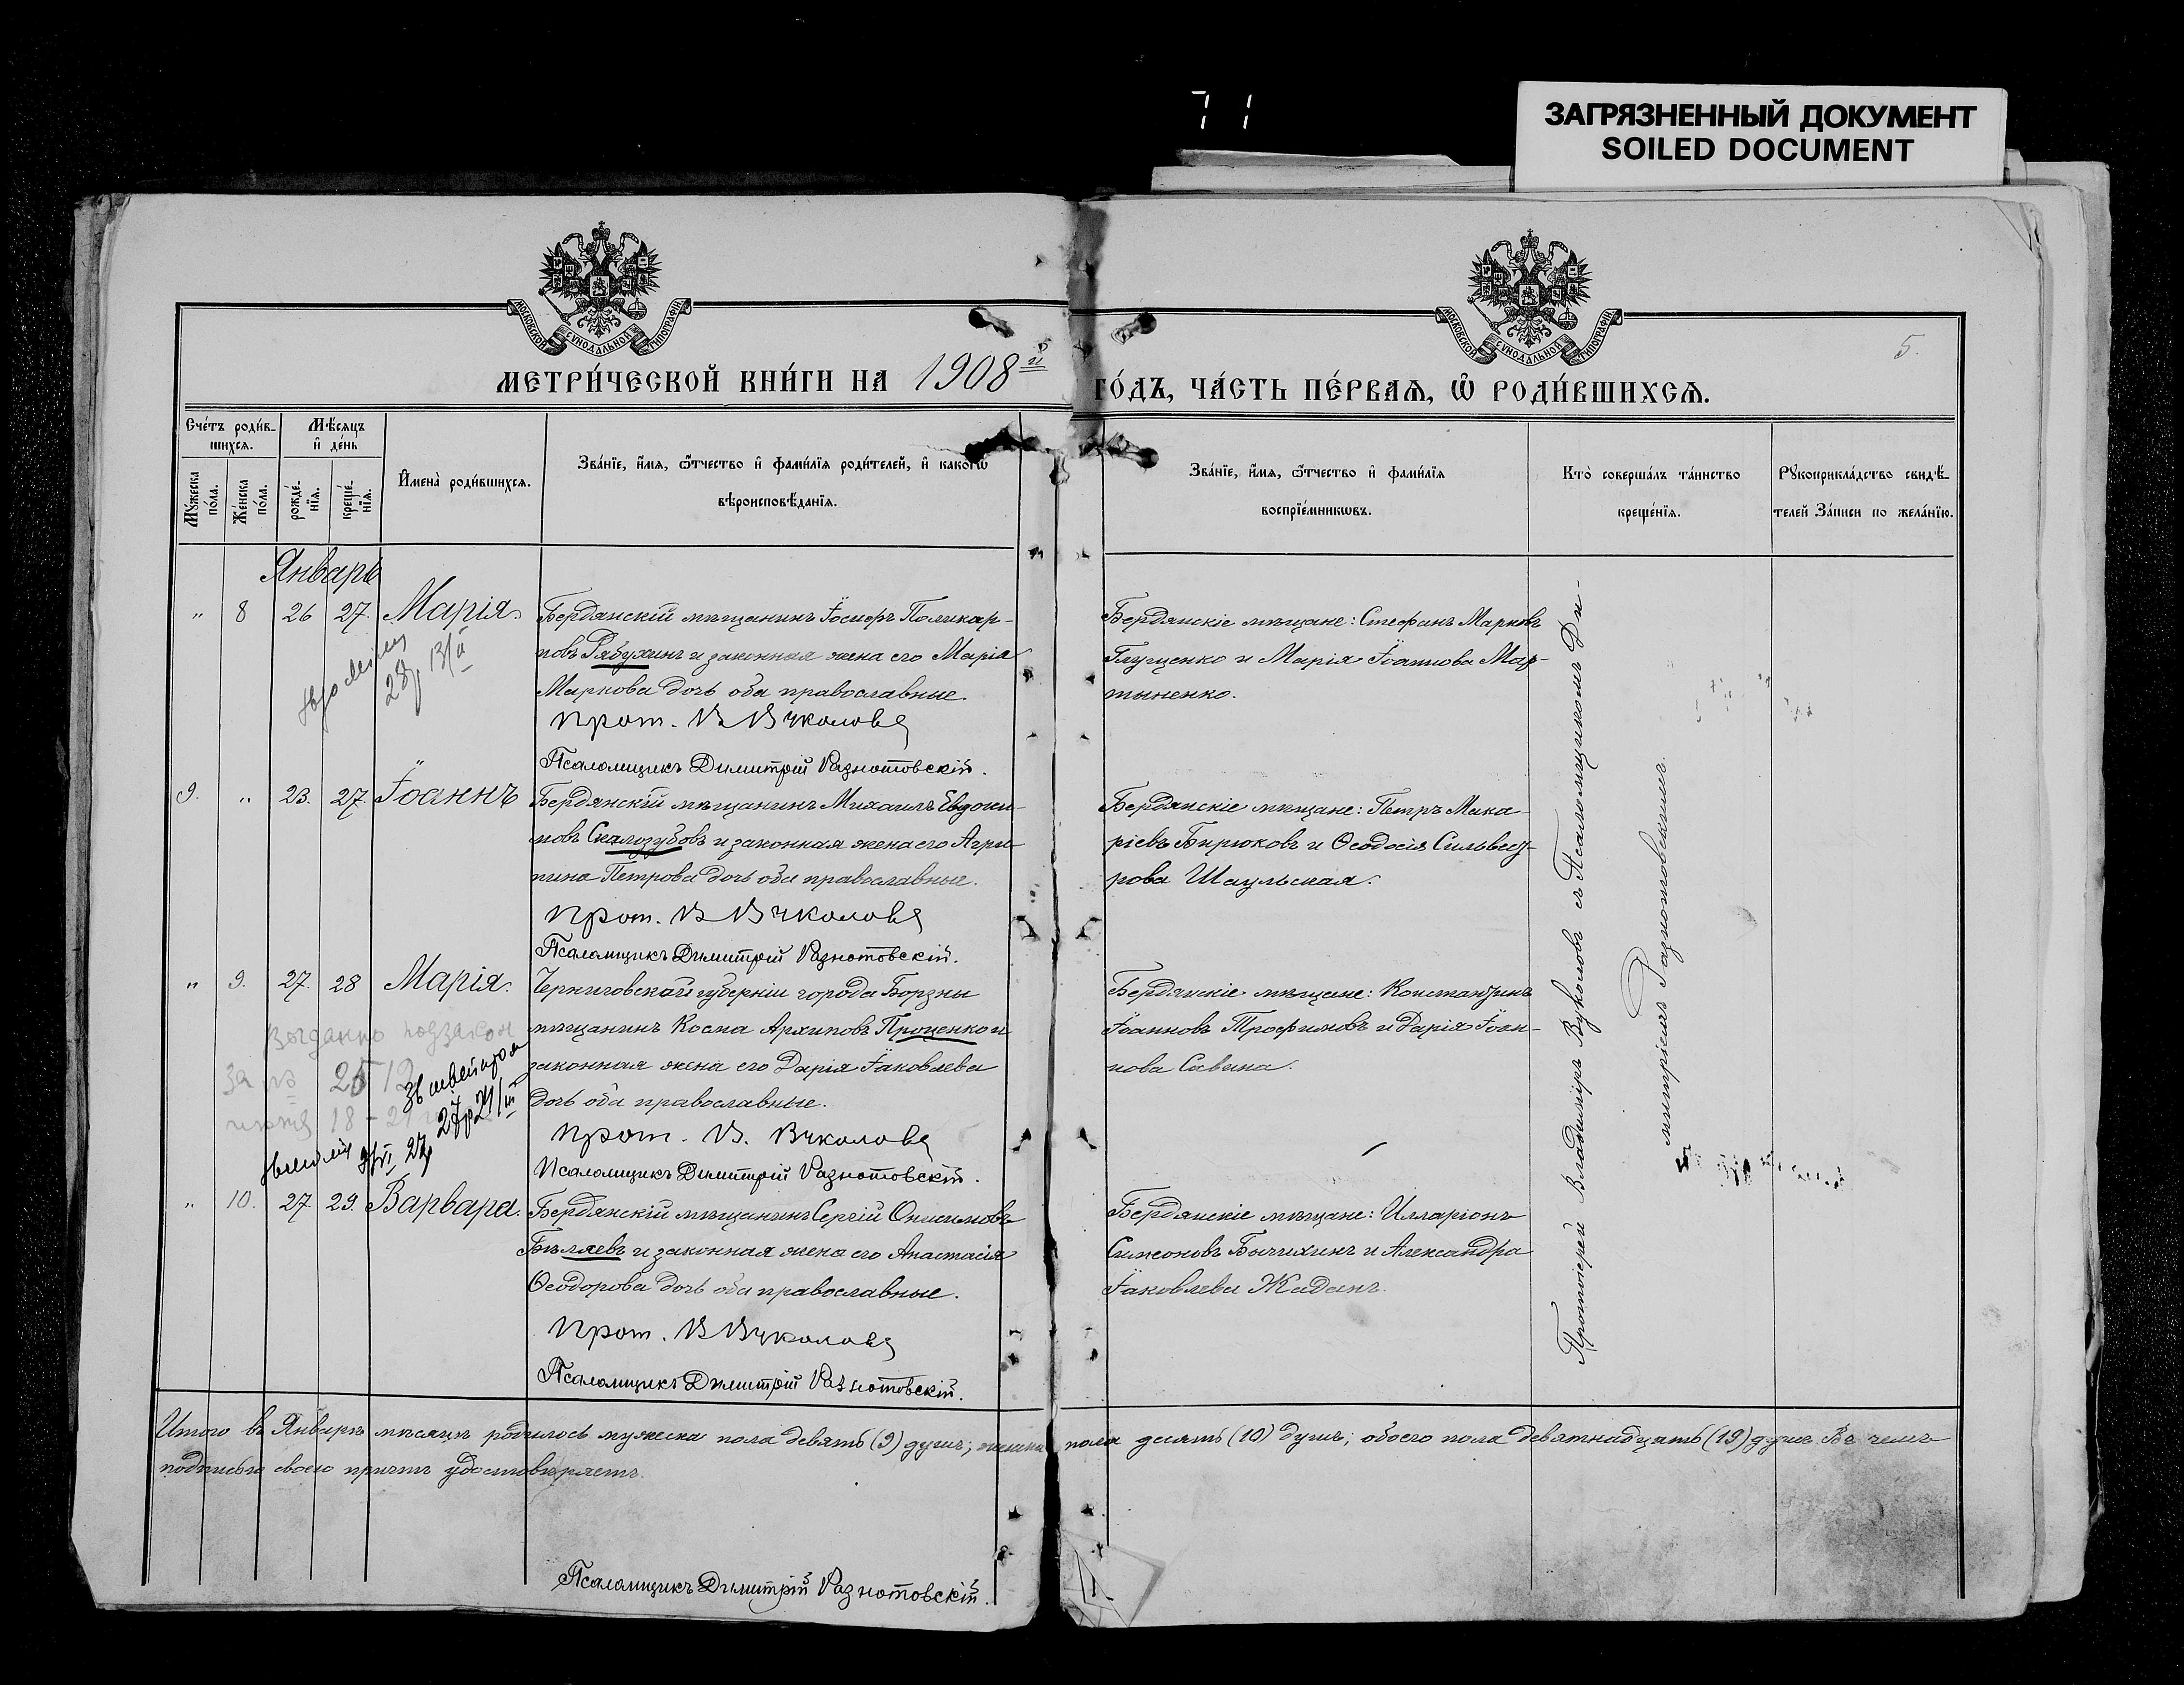 71
ЗАГРЯЗНЕННЫЙ ДОКУМЕНТ
SOILED DOCUMENT
МОСКОВСКОЙ СѴНОДАЛЬНОЙ ТИПОГРАФІИ
МОСКОВСКОЙ СѴНОДАЛЬНОЙ ТИПОГРАФІИ
5.
МЕТРИ́ЧЕСКОЙ КНИ́ГИ НА 1908й ГО́ДЪ, ЧА́СТЬ ПЕ́РВАѦ, Ѽ РОДИ́ВШИХСѦ.
Сче́тъ роди́в-
шихсѧ.
Мꙋ́жеска по́ла.
Же́нска по́ла.
Мѣ́сѧцъ
и҆ де́нь
рожде́-
нїѧ.
креще́-
нїѧ.
И҆мена̀ роди́вшихсѧ.
Зва́нїе, и҆́мѧ, ѻ҆́тчество и҆ фами́лїѧ роди́телей, и҆ како́гѡ
вѣроисповѣ́данїѧ.
Зва́нїе, и҆́мѧ, ѻ҆́тчество и҆ фами́лїѧ
воспрїе́мникѡвъ.
Кто̀ соверша́лъ та́инство
креще́нїѧ.
Рꙋкоприкла́дство свидѣ́-
телей За́писи по жела́нїю.
Январь
" 8 26 27. Марія.
Бердянскій мѣщанинъ Іосифъ Поликар-
повъ Рябухинъ и законная жена его Марія
Маркова дочь оба православные.
Прот. В Вуколовъ
Псаломщикъ Димитрій Разнотовскій.
Бердянскіе мѣщане: Стефанъ Марковъ
Глущенко и Марія Іоаннова Мар-
тыненко.
28
9. " 23. 27. Іоаннъ
Бердянскій мѣщанинъ Михаилъ Евдоки-
мовъ Скалозубовъ и законная жена его Агрип-
пина Петрова дочь оба православные.
Прот. В Вуколовъ
Псаломщикъ Димитрій Разнотовскій.
Бердянскіе мѣщане: Петръ Мака-
ріевъ Бирюковъ и Ѳеодосія Сильвест-
рова Шаульская.
" 9. 27. 28 Марія.
Черниговской губерніи города Борзны
мѣщанинъ Косма Архиповъ Проценко и
законная жена его Дарія Іаковлева
дочь оба православные.
Прот. В. Вуколовъ
Псаломщикъ Димитрій Разнотовскій.
Бердянскіе мѣщане: Константинъ
Іоанновъ Трофимовъ и Дарія Іоан-
нова Савина.
" 10. 27. 29. Варвара.
Бердянскій мѣщанинъ Сергій Онисимовъ
Бѣляевъ и законная жена его Анастасія
Ѳеодорова дочь оба православные.
Прот. В Вуколовъ
Псаломщикъ Димитрій Разнотовскій.
Бердянскіе мѣщане: Илларіонъ
Симеоновъ Бычихинъ и Александра
Іаковлева Жаданъ.
Протоіерей Владиміръ Вуколовъ съ Псаломщикомъ Ди-
митріемъ Разнотовскимъ.
Итого въ Январѣ мѣсяцѣ родилось мужеска пола девять (9) душъ; женска пола десять (10) душъ; обоего пола девятнадцать (19) душъ. Въ чемъ
подписью своею причтъ удостовѣряетъ.
Псаломщикъ Димитрій Разнотовскій.